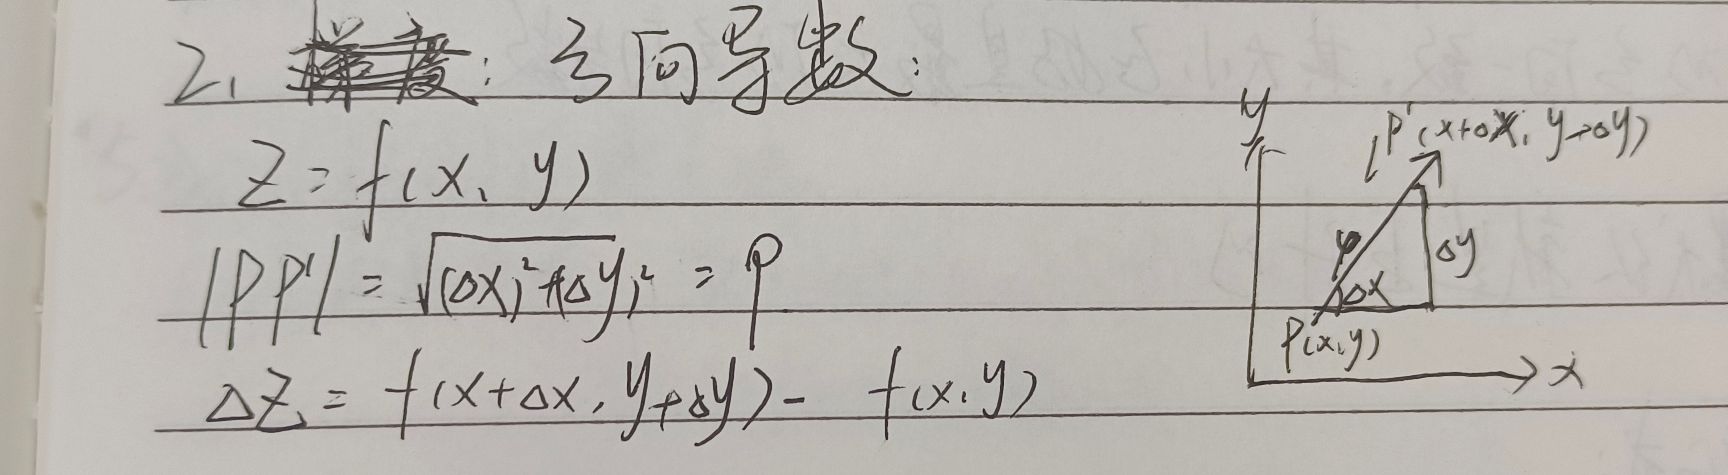 2. : 方向导数:
Z = f(x, y)
|PP'| = √(Δx)²+(Δy)² = ρ
ΔZ = f(x+Δx, y+Δy) - f(x, y)
y
l
P'(x+Δx, y+Δy)
φ
Δy
Δx
P(x,y)
x